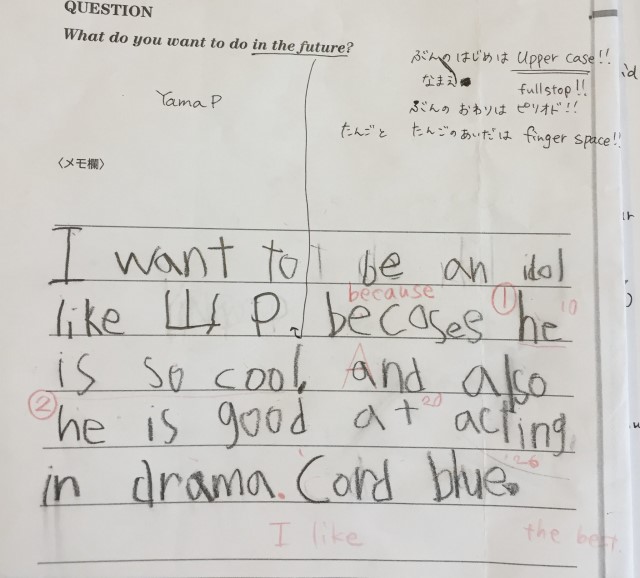 QUESTION
What do you want to do in the future?
ぶんのはじめは Upper case!!
なまえ
fullstop!!
Yama P
ぶんの おわりは ピリオド!!
たんごと たんごのあいだは finger space!!
〈メモ欄〉
I want to be an idol
because ① 10
like 山 P. becoses he
is so cool, and also
A
② he is good at acting
20
26
in drama. Cord blue.
I like the best.